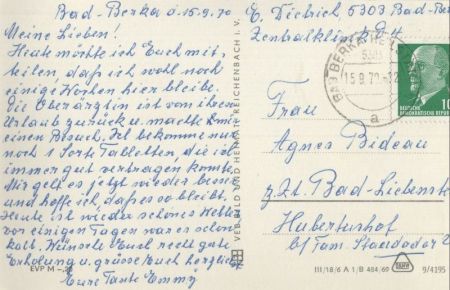 Bad-Berka d. 15.9.70
Meine Lieben!
Heute möchte ich Euch mit-
teilen, daß ich wohl noch
einige Wochen hier bleibe.
Die Oberärztin ist von ihrem
Urlaub zurück u. machte mir
einen Besuch. Ich bekomme nur
noch 1 Sorte Tabletten, die ich
immer gut vertragen konnte.
Mir geht es jetzt wieder besser
und hoffe ich, daß es so bleibt.
Heute ist wieder schönes Wetter
vor einigen Tagen war es schon
kalt. Wünsche Euch recht gute
Erholung u. grüsse Euch herzlich
Eure Tante Emmy
EVP M -,20
VEB BILD UND HEIMAT REICHENBACH I. V.
E. Dietrich 5303 Bad-Ber
Zentralklinik
BAD BERKA
5303
15.9.70-12
a
DEUTSCHE
DEMOKRATISCHE REPUBLIK
10
Frau
Agnes Bideau
z. Zt. Bad-Liebenste
Hubertushof
b/ Fam.
III/18/6 A 1/B 484/69
9/4195